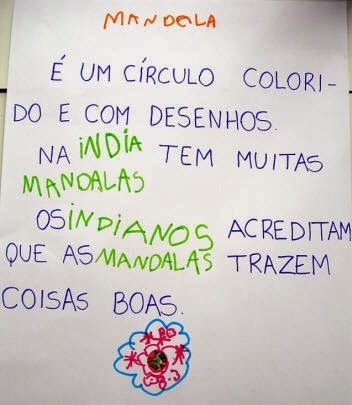 MANDELA
É UM CÍRCULO COLORI-
DO E COM DESENHOS.
NA iNDiA TEM MUITAS
MANDALAS
OS iNDiANOS ACREDITAM
QUE AS MANDALAS TRAZEM
COISAS BOAS.